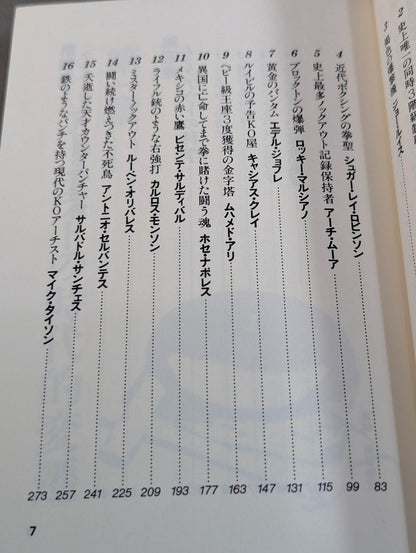 2 史上唯一の同時3階級
3 褐色の爆撃機 ジョー・ルイス
4 近代ボクシングの拳聖 シュガー・レイ・ロビンソン 83
5 史上最多ノックアウト記録保持者 アーチ・ムーア 99
6 ブロックトンの爆弾 ロッキー・マルシアノ 115
7 黄金のバンタム エデル・ジョフレ 131
8 ルイビルの予告KO屋 キャシアス・クレイ 147
9 ヘビー級王座3度獲得の金字塔 ムハメド・アリ 163
10 異国に亡命してまで拳に賭けた闘う魂 ホセ・ナポレス 177
11 メキシコの赤い鷹 ビセンテ・サルディバル 193
12 ライフル銃のような右強打 カルロス・モンソン 209
13 ミスターノックアウト ルーベン・オリバレス 225
14 闘い続け燃えつきた不死鳥 アントニオ・セルバンテス 241
15 夭逝した天才カウンターパンチャー サルバドル・サンチェス 257
16 鉄のようなパンチを持つ現代のKOアーチスト マイク・タイソン 273
7